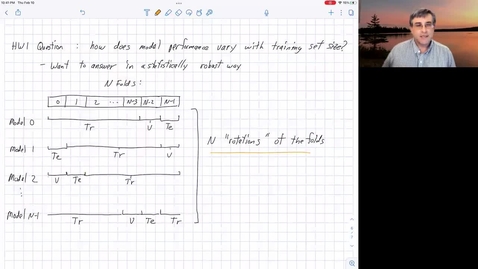 10:41 PM Thu Feb 10
HW1 Question : how does model performance vary with training set size?
- Want to answer in a statistically robust way
N Folds:
0 1 2 ... N-3 N-2 N-1
Model 0
Tr V Te
Model 1
Te Tr V
N "rotations" of the folds
Model 2
V Te Tr
⋮
Model N-1
Tr V Te Tr